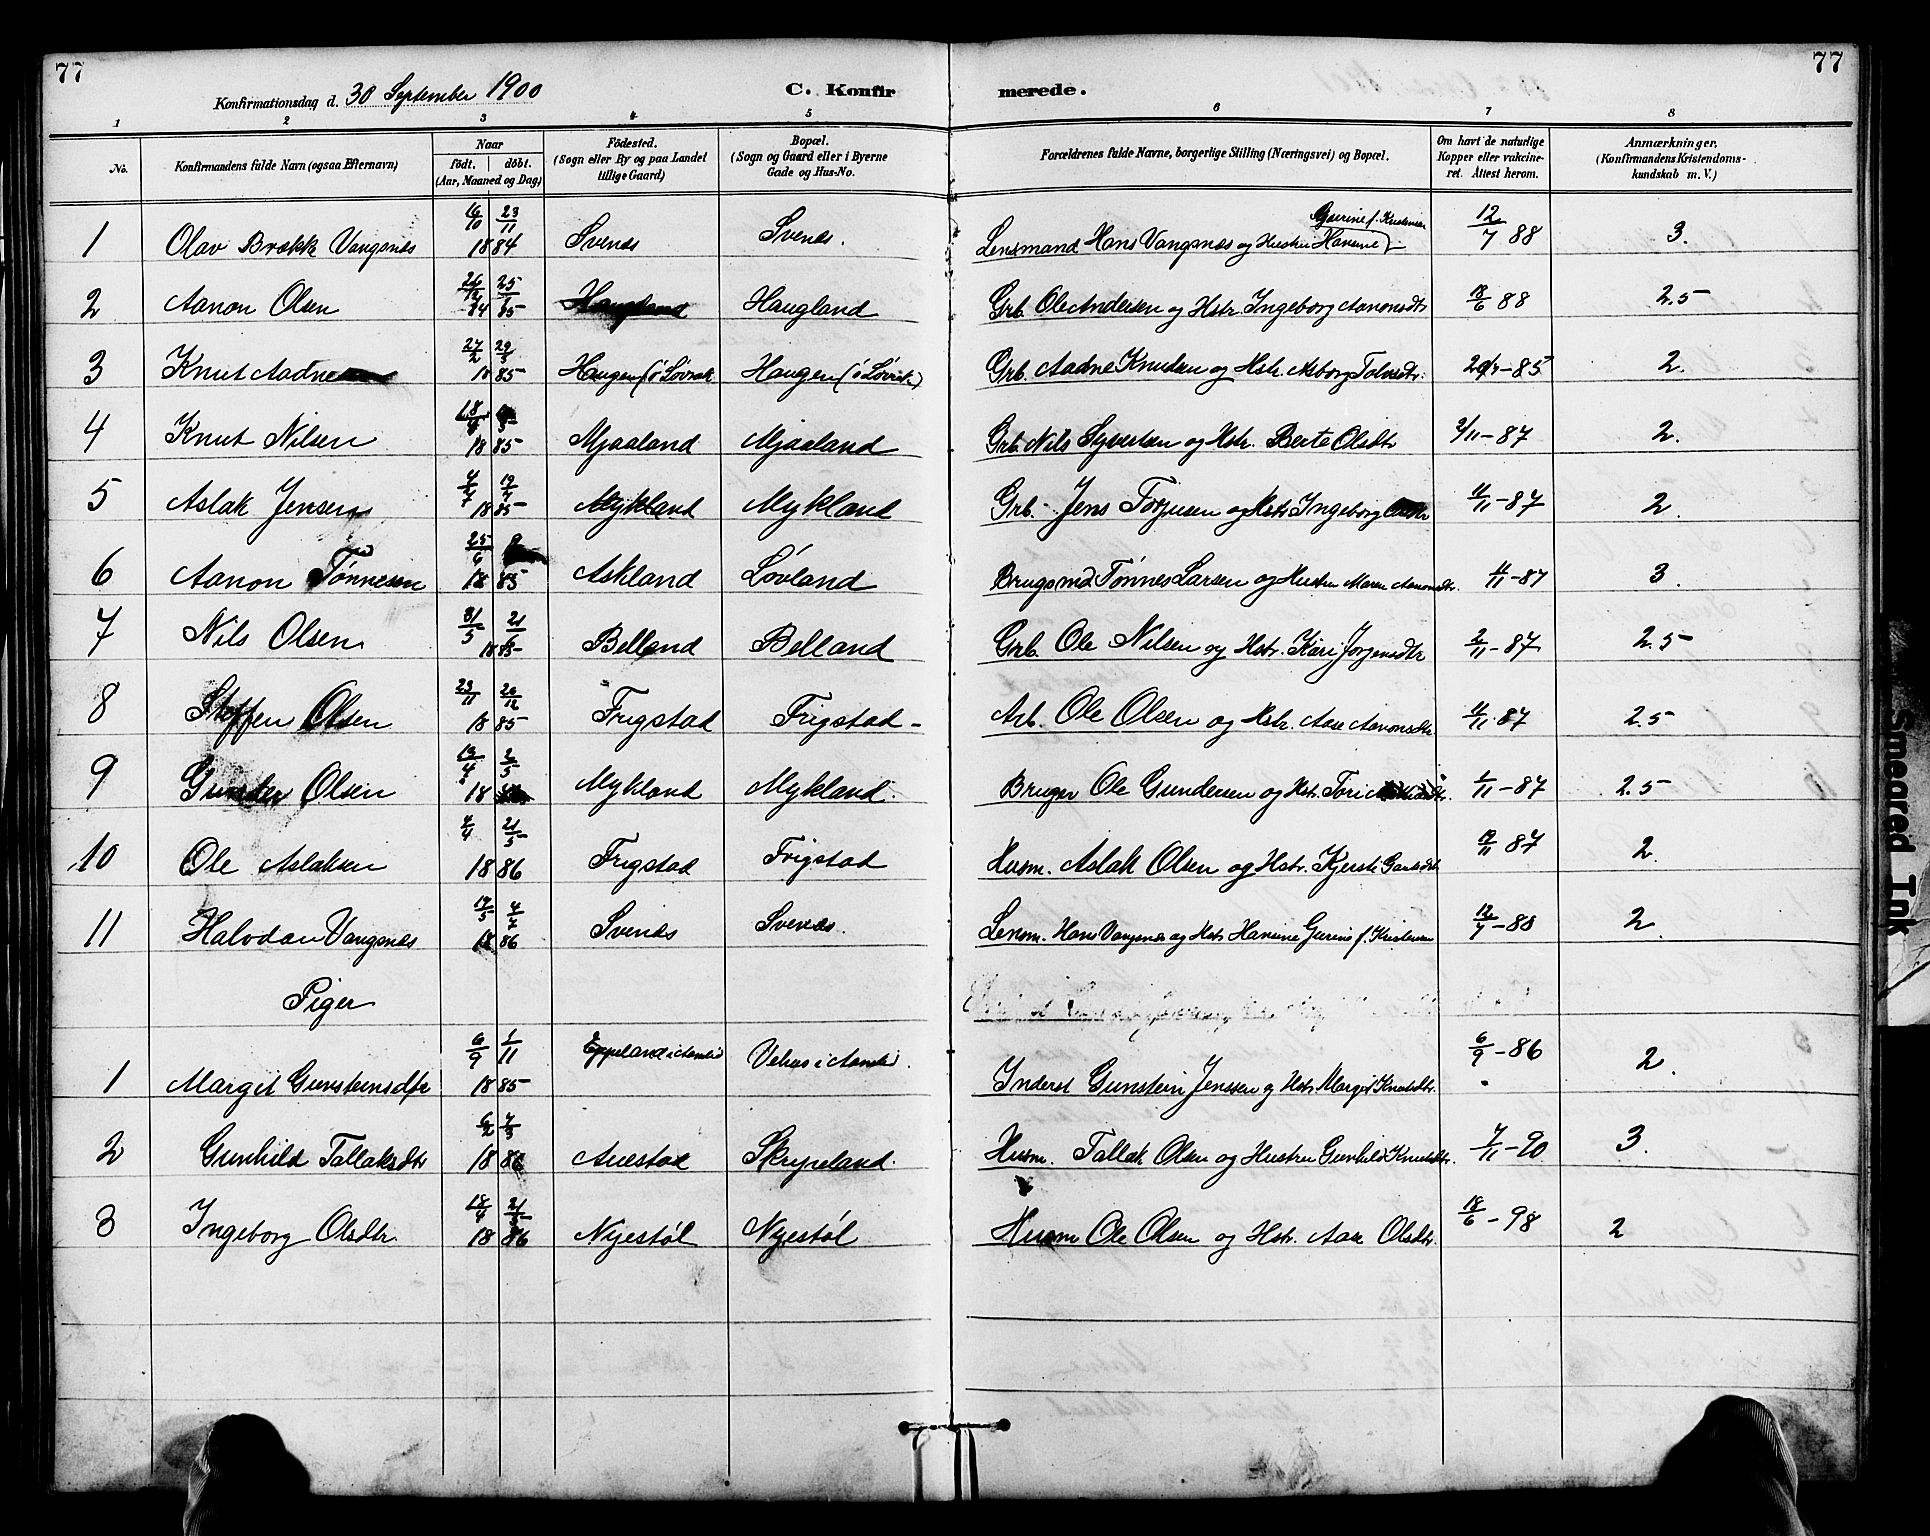 77
77
Konfirmationsdag d. 30 September 1900
C. Konfirmerede.
1 2 3 4 5 6 7 8
No.
Konfirmandens fulde Navn (ogsaa Efternavn)
Naar
født. døbt.
(Aar, Maaned og Dag)
Fødested.
(Sogn eller By og paa Landet
tillige Gaard)
Bopæl.
(Sogn og Gaard eller i Byerne
Gade og Hus-No.
Forældrenes fulde Navne, borgerlige Stilling (Næringsvei) og Bopæl.
Om havt de naturlige
Kopper eller vakcine-
ret. Attest herom.
Anmærkninger.
(Konfirmandens Kristendoms-
kundskab m. V.)
1 Olav Brækk Vangsnes 16/10 23/11 1884 Svenæs Svenæs. Lensmand Hans Vangsnæs og Hustru Hansine Gurine f. Kristensen 12/7 88 3.
2 Aanon Olsen 26/12 84 25/1 85 Haugland Haugland Grb. Ole Andersen og Hstr. Ingeborg Aanonsdtr 18/6 88 2.5
3 Knut Aadnesen 27/2 29/3 1885 Haugen (i Løvrak Haugen (i Løvrak) Grb. Aadne Knudsen og Hstr. Tolvsdtr. -85 2.
4 Knut Nilsen 18/4 1885 Mjaaland Mjaaland Grb. Nils Syvertsen og Hstr. Berte Olsdtr 2/11-87 2.
5 Aslak Jensen 4/7 19/7 1885 Mykland Mykland Grb. Jens Torjusen og Hstr. Ingeborg 11/11-87 2.
6 Aanon Tønnesen 25/6 1885 Askland Løvland Brugsmd. Tønnes Larsen og Hustru Maren Aanonsdtr. 11/11-87 3.
7 Nils Olsen 31/5 21/6 1885 Belland Belland Grb. Ole Nilsen og Hstr. Kari Jørgensdtr 2/11-87 2.5
8 Steffen Olsen 23/11 26/12 1885 Frigstad Frigstad- Arb. Ole Olsen og Hstr. Aase Aanonsdtr 11/11-87 2.5
9 Gunder Olsen 13/4 2/5 18 Mykland Mykland. Bruger Ole Gundersen og Hstr. Tori 1/11-87 2.5
10 Ole Aslaksen 4/4 21/5 1886 Frigstad Frigstad Husm. Aslak Olsen og Hstr. Kjersti 12/11 87 2.
11 Halvdan Vangsnæs 17/5 4/7 1886 Svenæs Svenæs. Lensm. Hans Vangsnæs og Hstr. Hansine Gurine f. Kristensen 12/7-88 2.
Piger
1 Margit Gunsteinsdtr 6/9 1/11 1885 Eppeland i Aamlid i Aamlid. Inderst Gunstein Jenssen og Hstr. Margit Knutsdtr. 6/9-86 2.
2 Gunhild Tallaksdtr 6/2 7/3 1886 Auestad Skripeland. Husm. Tallak Olsen og Hustru Gunhild Knutsdtr. 7/11-90 3.
3 Ingeborg Olsdtr. 18/4 21/5 1886 Nyestøl Nyestøl Husm Ole Olsen og Hstr. Aase Olsdtr. 18/6-98 2
Smeared Ink